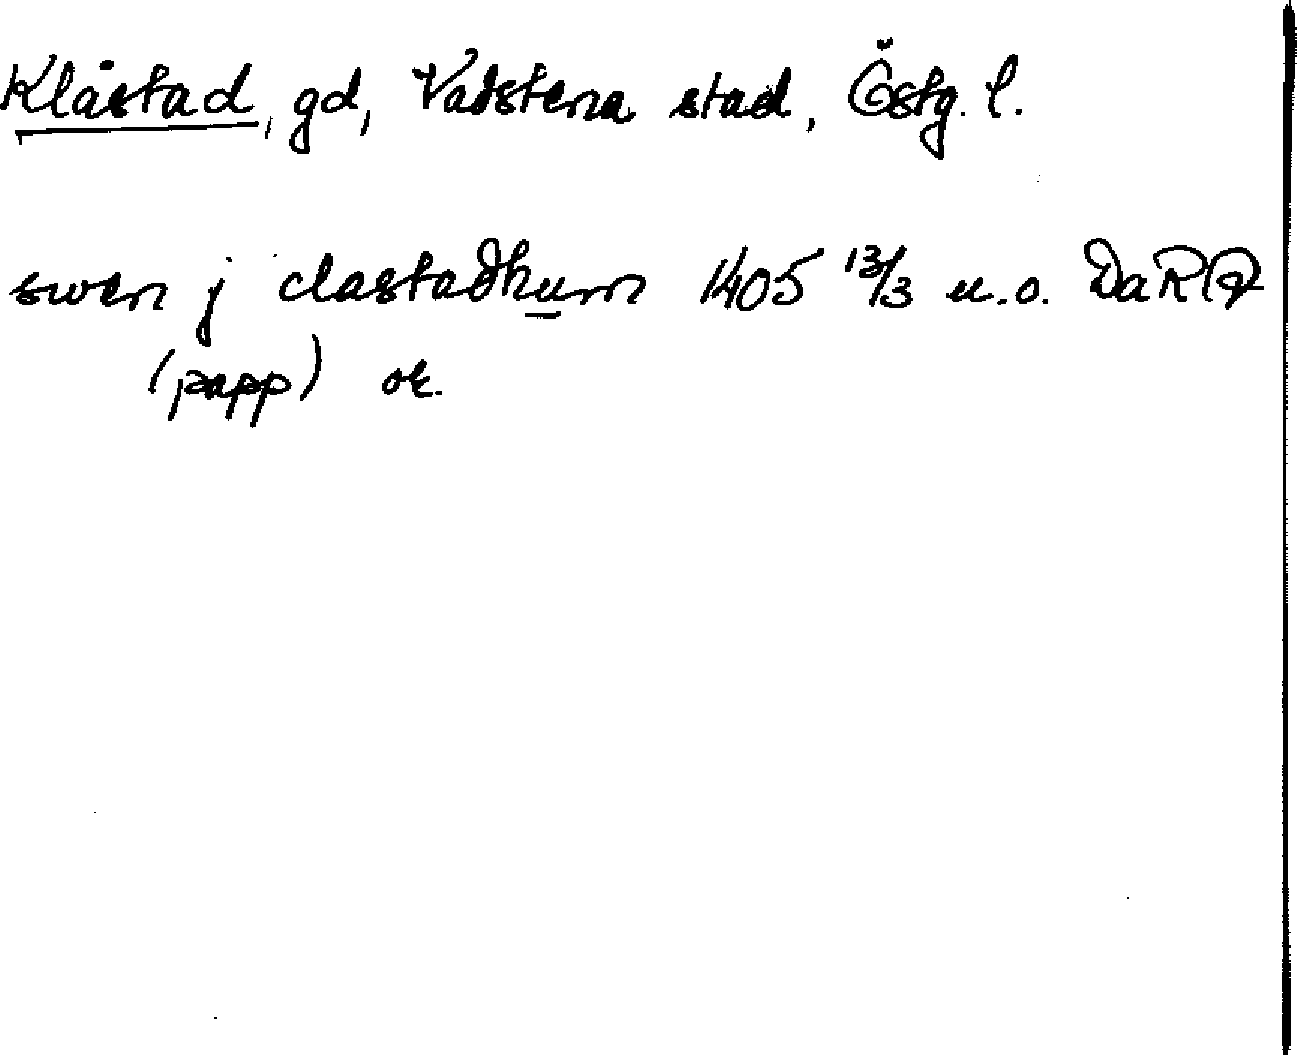 Klåstad, gd, Vadstena stad, Östg. l.
swen j clastadhum 1405 13/3 u.o. DaRA
(papp) or.